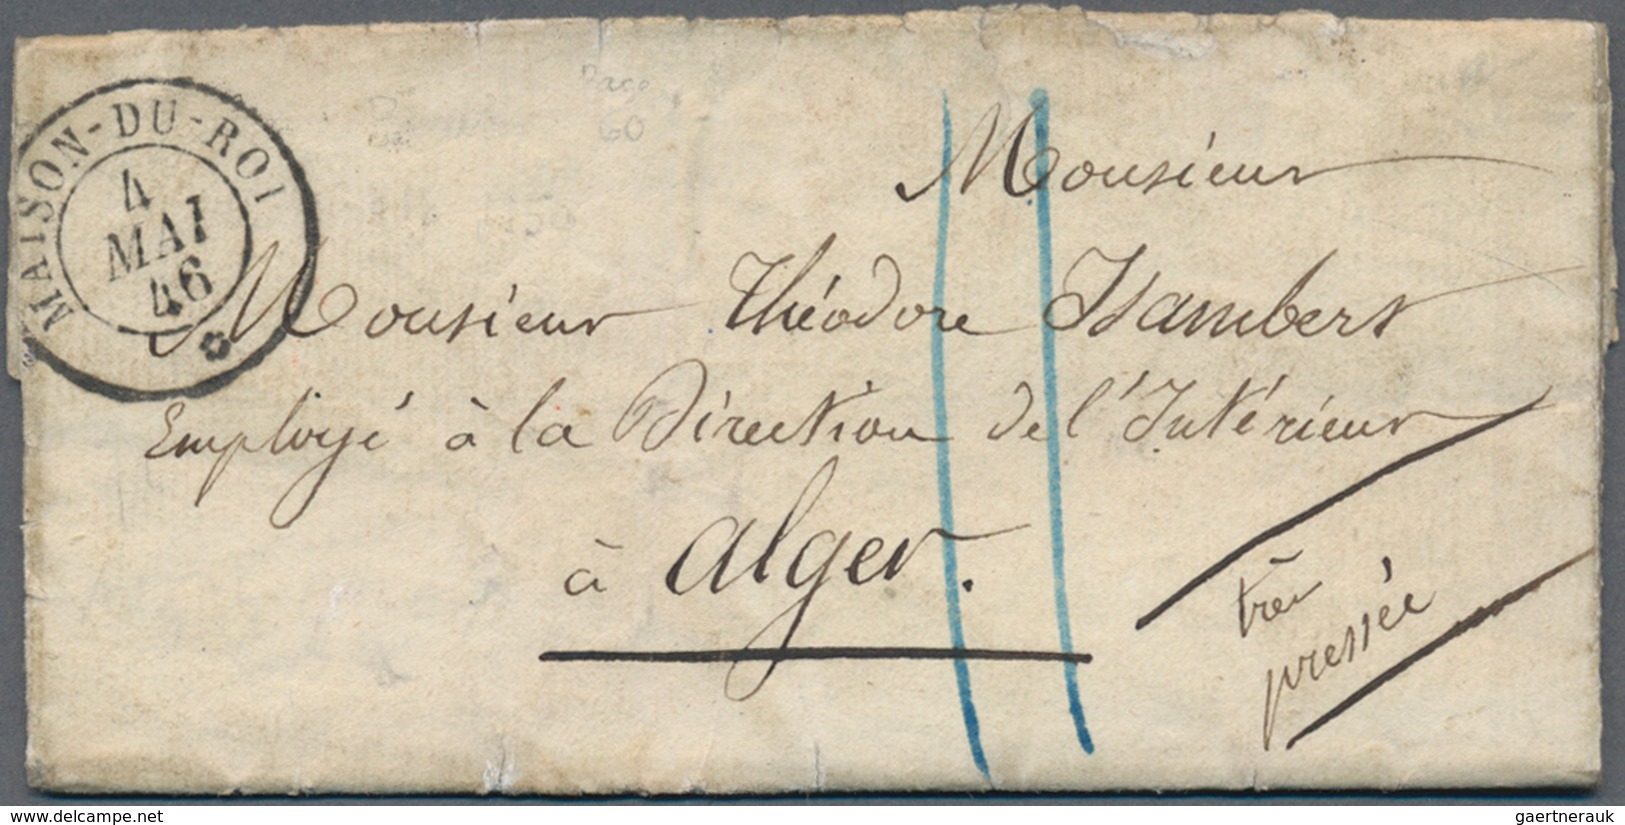 MAISON-DU-ROI
4
MAI
46
Page
60
Monsieur
Monsieur Théodore Isambert
Employé à la Direction de l'Intérieur
à Alger.
très
pressée
delcampe.net
gaertnerauk